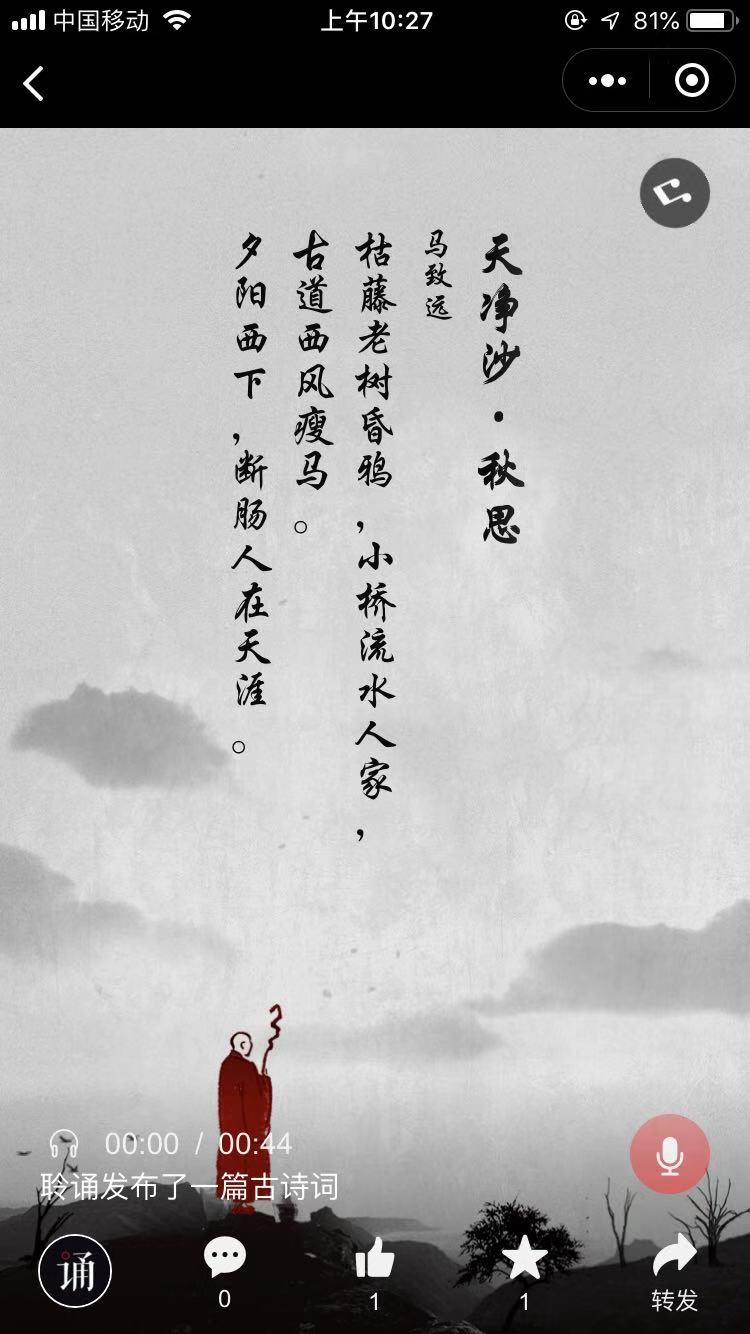 中国移动
上午10:27
81%
天净沙·秋思
马致远
枯藤老树昏鸦，小桥流水人家，
古道西风瘦马。
夕阳西下，断肠人在天涯。
00:00 / 00:44
聆诵发布了一篇古诗词
诵
0
1
1
转发